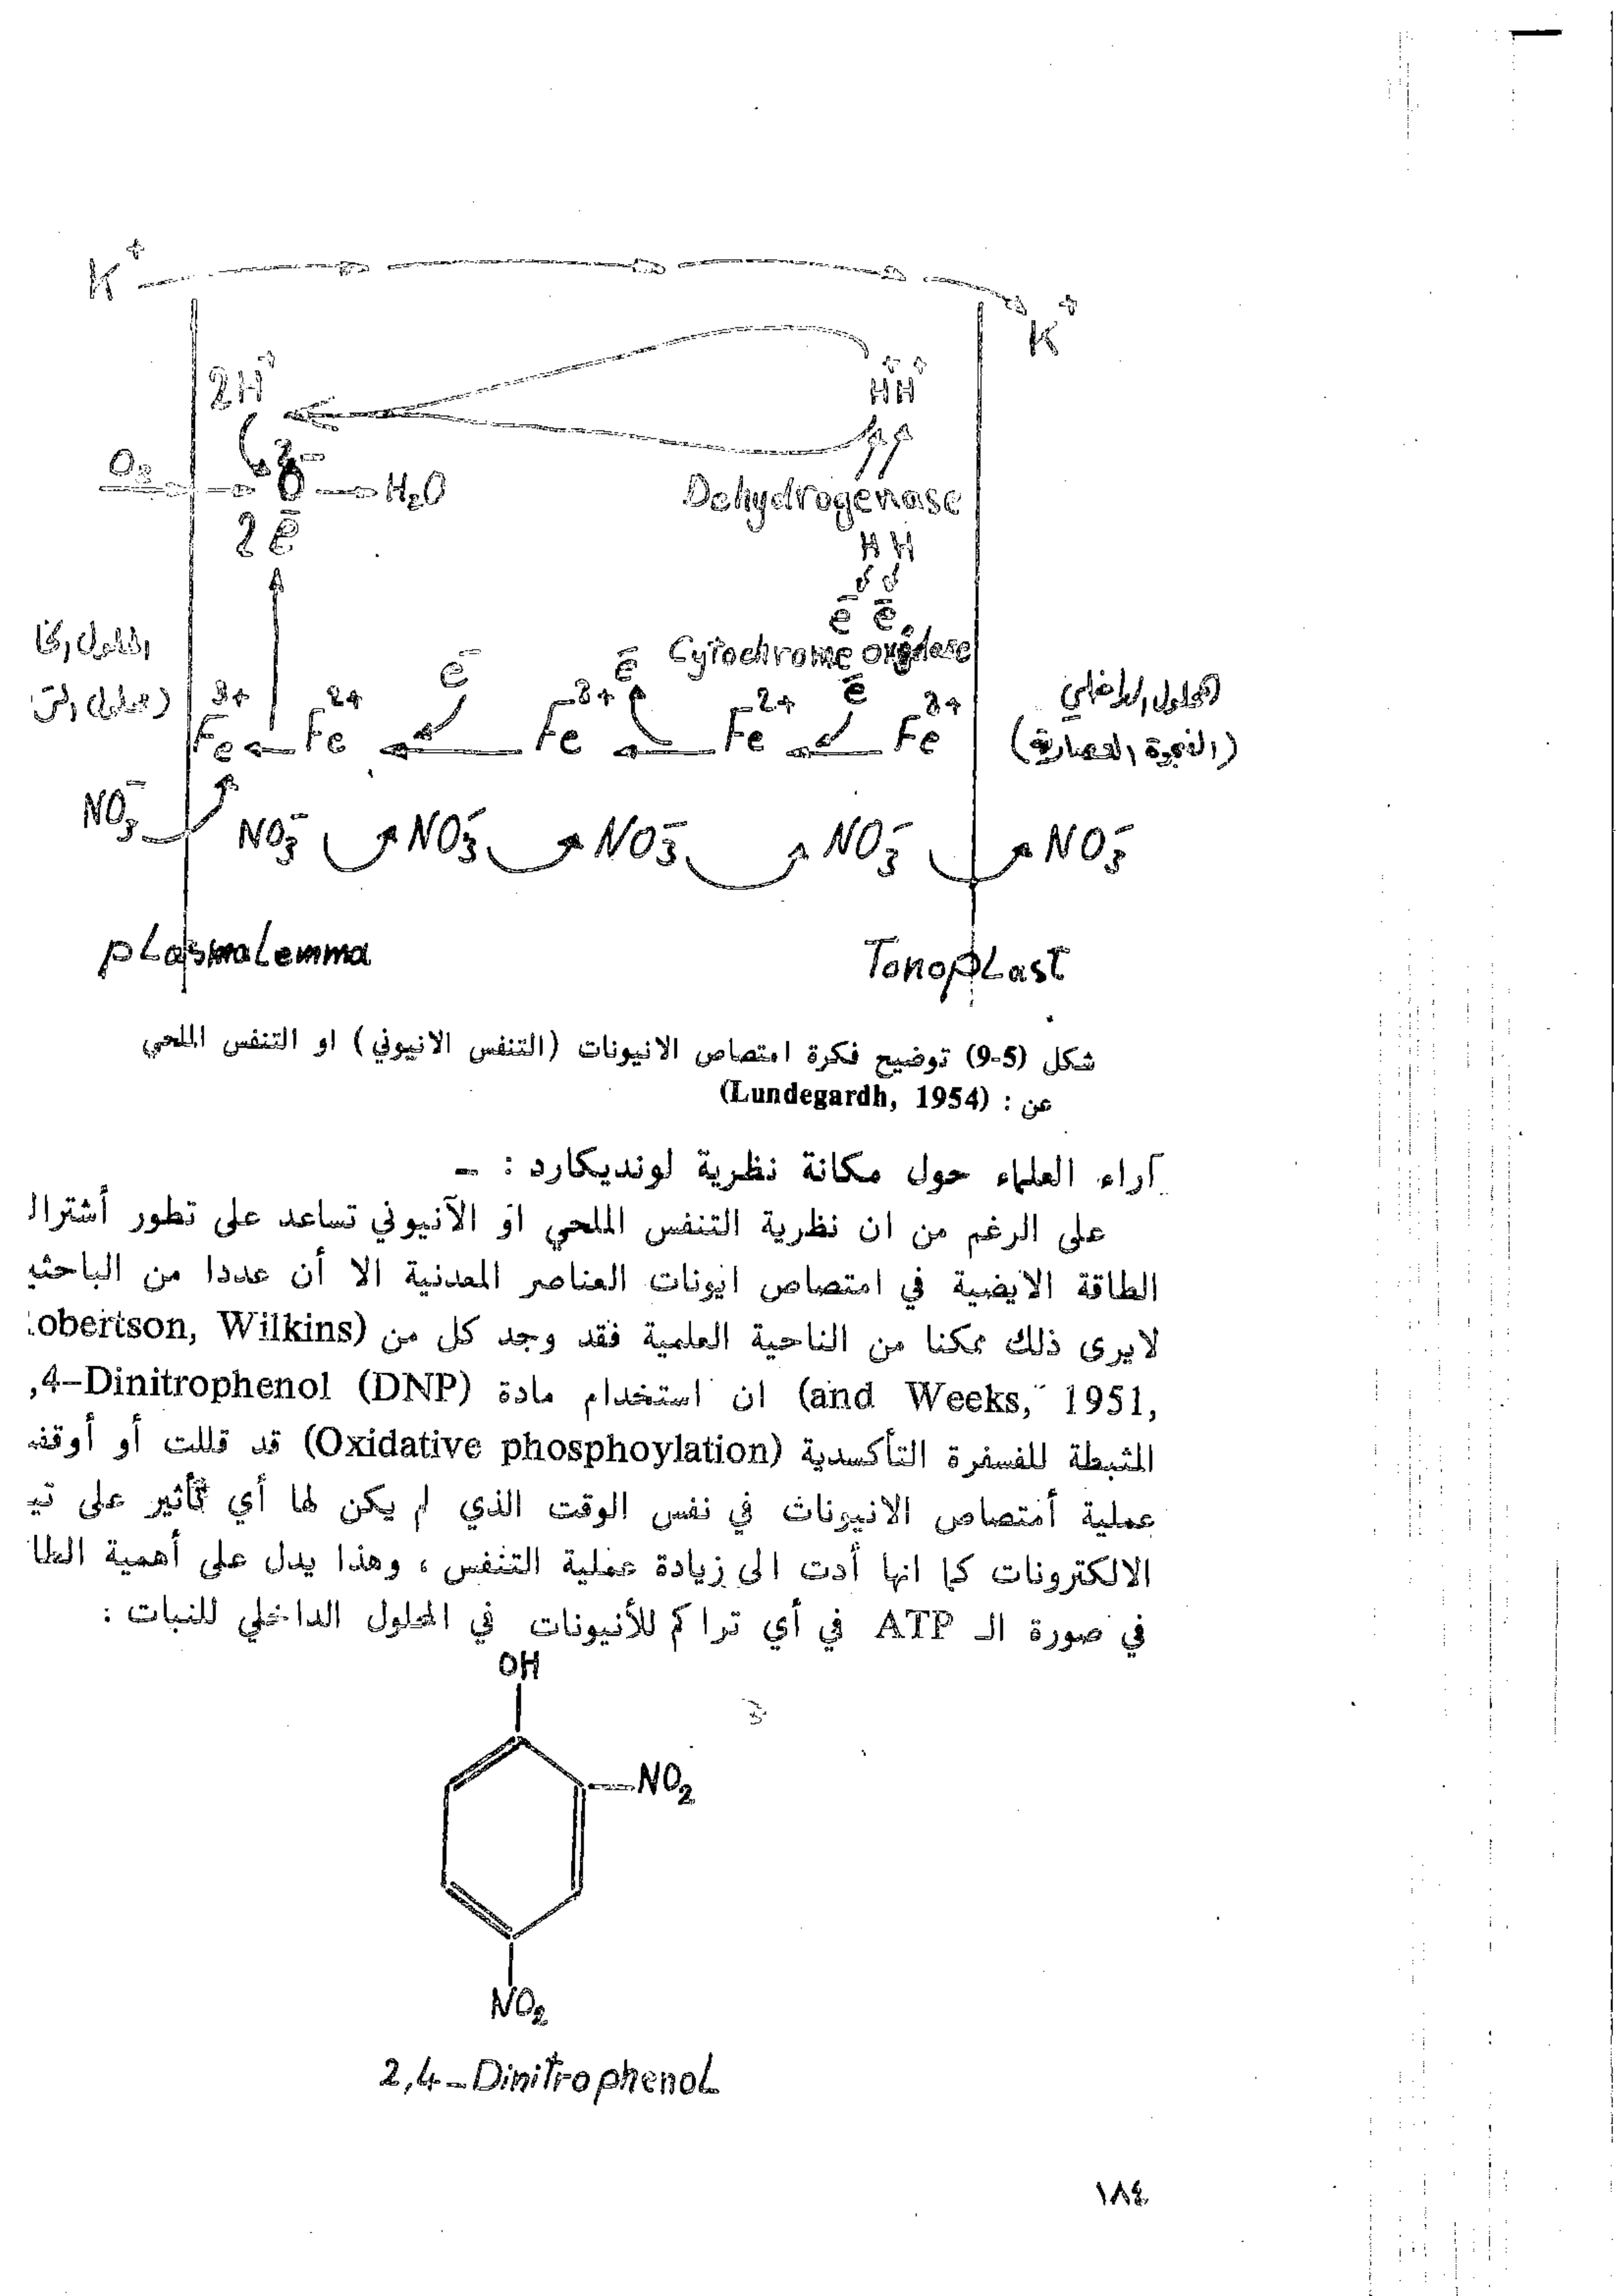 K⁺
K⁺
2H⁺
H⁺H⁺
O₂
O²⁻
H₂O
Dehydrogenase
2ē
H H
ē ē
Cytochrome oxidase
(محلول
المحلول الداخلي
(الفجوة العصارية)
ē ē ē
Fe³⁺ Fe²⁺ Fe³⁺ Fe²⁺ Fe³⁺
NO₃⁻ NO₃⁻ NO₃⁻ NO₃⁻ NO₃⁻ NO₃⁻
plasmalemma
Tonoplast
شكل (5-9) توضيح فكرة امتصاص الانيونات (التنفس الانيوني) او التنفس الملحي
عن : (Lundegardh, 1954)
آراء العلماء حول مكانة نظرية لونديكارد : ـ
على الرغم من ان نظرية التنفس الملحي او الآنيوني تساعد على تطور
الطاقة الايضية في امتصاص ايونات العناصر المعدنية الا أن عددا من
لايرى ذلك ممكنا من الناحية العلمية فقد وجد كل من (obertson, Wilkins
and Weeks, 1951,) ان استخدام مادة ,4-Dinitrophenol (DNP)
المثبطة للفسفرة التأكسدية (Oxidative phosphoylation) قد قللت أو
عملية أمتصاص الانيونات في نفس الوقت الذي لم يكن لها أي تأثير على
الالكترونات كما انها أدت الى زيادة عملية التنفس ، وهذا يدل على أهمية
في صورة الـ ATP في أي تراكم للأنيونات في المحلول الداخلي للنبات :
OH
NO₂
NO₂
2,4-Dinitrophenol
١٨٤